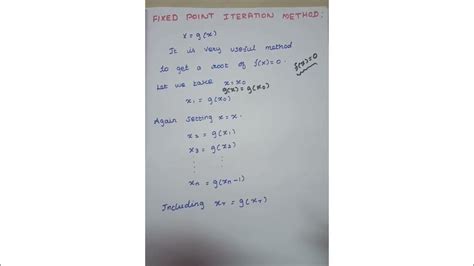 FIXED POINT ITERATION METHOD:
x = g(x)
It is very useful method
to get a root of f(x)=0.
f(x)=0
Let we take x=x0
g(x)=g(x0)
x1 = g(x0)
Again setting x=x,
x2 = g(x1)
x3 = g(x2)
⋮ ⋮
xn = g(xn-1)
Including xr = g(xr)